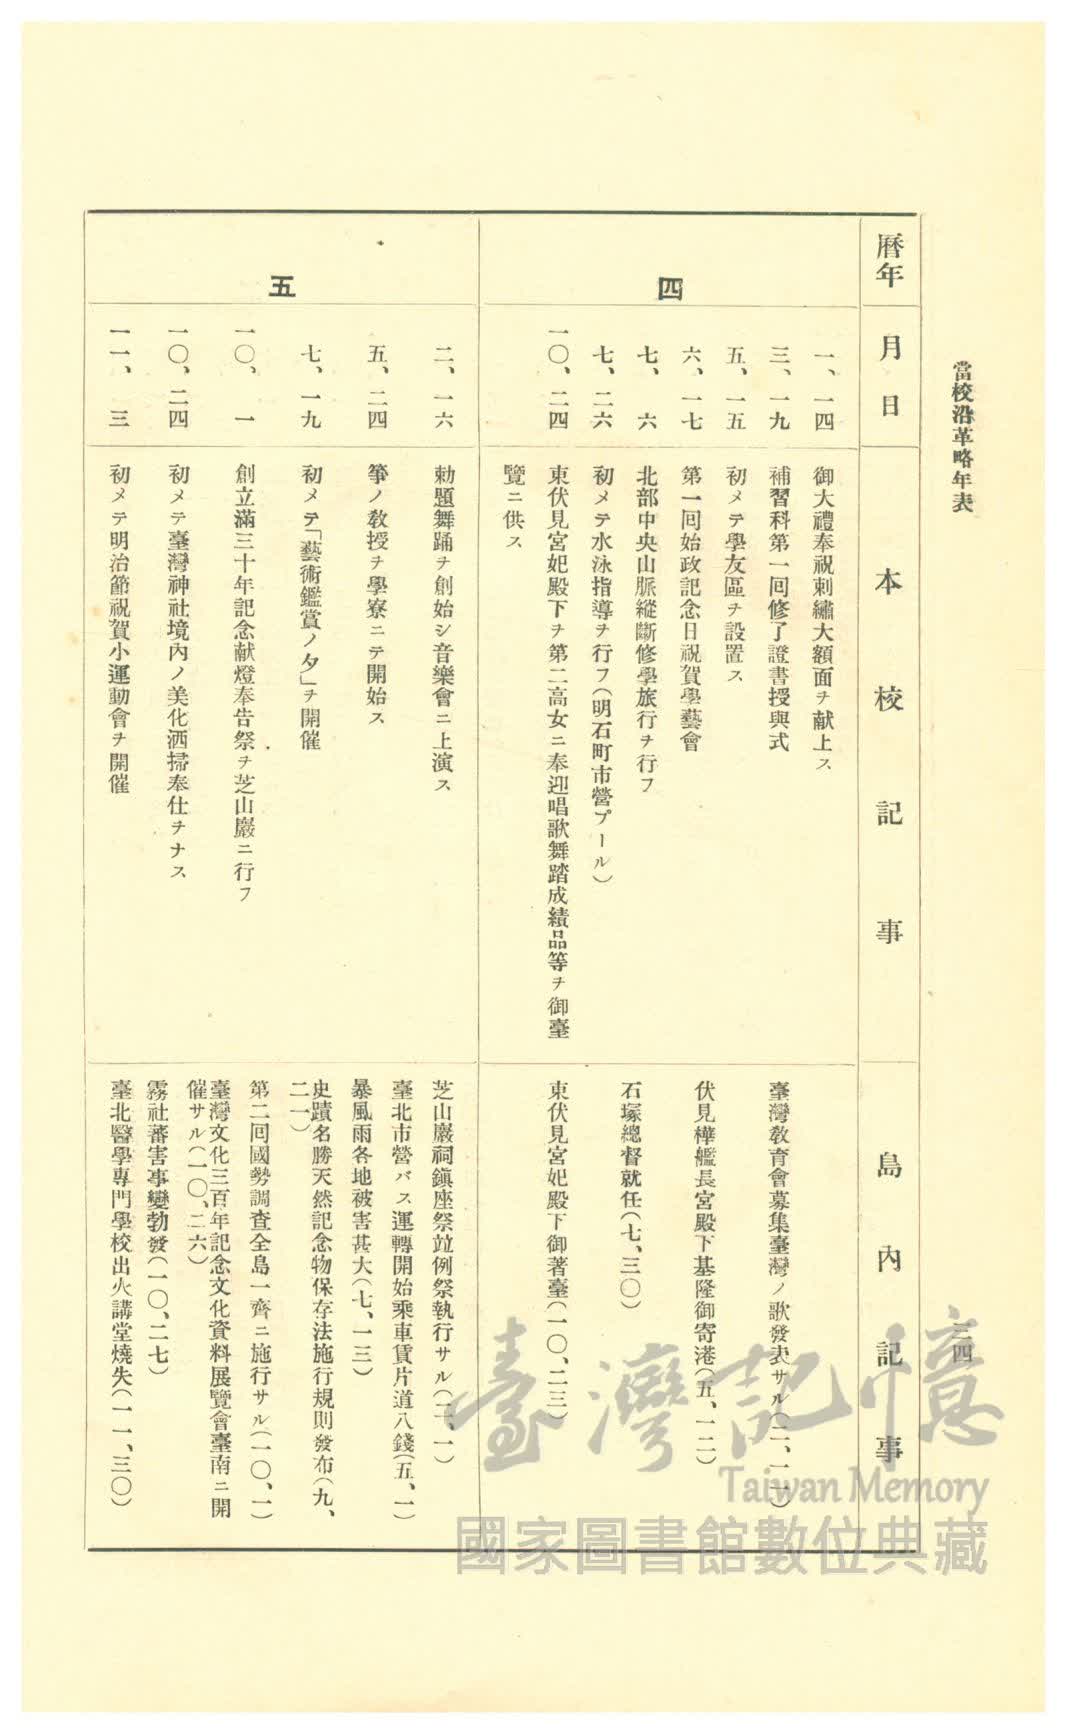 當校沿革略年表
三四
曆年
月日
本校記事
島內記事
四
一、一四
御大禮奉祝刺繡大額面ヲ献上ス
三、一九
補習科第一回修了證書授與式
五、一五
初メテ學友區ヲ設置ス
六、一七
第一回始政記念日祝賀學藝會
七、六
北部中央山脈縱斷修學旅行ヲ行フ
七、二六
初メテ水泳指導ヲ行フ(明石町市營プール)
一〇、二四
東伏見宮妃殿下ヲ第二高女ニ奉迎唱歌舞踏成績品等ヲ御臺
覽ニ供ス
臺灣敎育會募集臺灣ノ歌發表サル(二、一一)
伏見樺艦長宮殿下基隆御寄港(五、一二)
石塚總督就任(七、三〇)
東伏見宮妃殿下御著臺(一〇、二三)
五
二、一六
勅題舞踊ヲ創始シ音樂會ニ上演ス
五、二四
箏ノ敎授ヲ學寮ニテ開始ス
七、一九
初メテ「藝術鑑賞ノ夕」ヲ開催
一〇、一
創立滿三十年記念献燈奉告祭ヲ芝山巖ニ行フ
一〇、二四
初メテ臺灣神社境內ノ美化洒掃奉仕ヲナス
一一、三
初メテ明治節祝賀小運動會ヲ開催
芝山巖祠鎭座祭竝例祭執行サル(二、一)
臺北市營バス運轉開始乘車賃片道八錢(五、一)
暴風雨各地被害甚大(七、一三)
史蹟名勝天然記念物保存法施行規則發布(九、
二一)
第二回國勢調査全島一齊ニ施行サル(一〇、一)
臺灣文化三百年記念文化資料展覽會臺南ニ開
催サル(一〇、二六)
霧社蕃害事變勃發(一〇、二七)
臺北醫學專門學校出火講堂燒失(一一、三〇)
臺灣記憶
Taiwan Memory
國家圖書館數位典藏